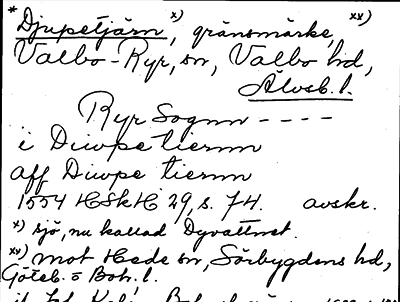 * Djupetjärn x), gränsmärke, xx)
Valbo-Ryr, sn, Valbo hd,
Älvsb. l.
Ryr Sognn ----
i Diupe tiernn
aff Diupe tiernn
1554 HSkH 29, s. 74. avskr.
x) sjö, nu kallad Dyvattnet.
xx) mot Hede sn, Sörbygdens hd,
Göteb. o Boh. l.